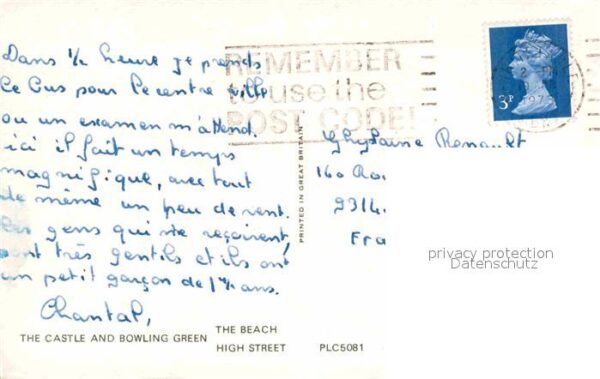 Dans 1/2 heure je prends
le bus pour le centre ville
ou un examen m'attend.
ici il fait un temps
magnifique, avec tout
de même un peu de vent.
les gens qui me reçoivent,
sont très gentils et ils ont
un petit garçon de 1 1/2 ans.
Chantal,
REMEMBER
to use the
POST CODE!
3P
PRINTED IN GREAT BRITAIN
Ghyslaine Renault
160 Ro.
9314.
Fra
privacy protection
Datenschutz
THE CASTLE AND BOWLING GREEN
THE BEACH
HIGH STREET
PLC5081